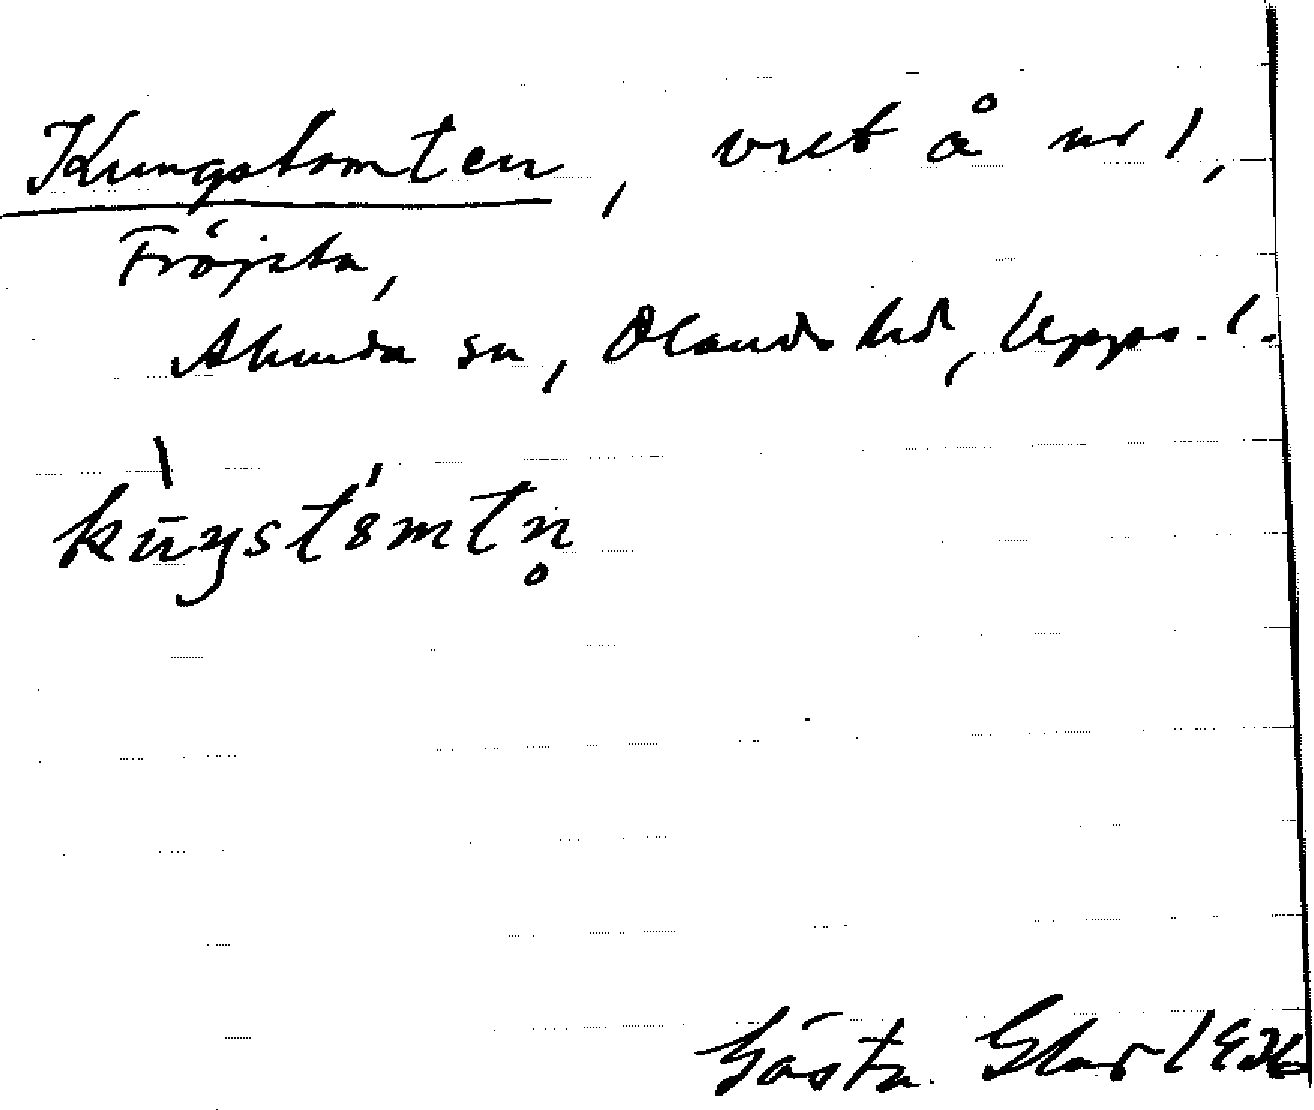 Kungstomten, vret å nr 1,
Fröjsta,
Alunda sn, Olands hd, Upps. l.
kuŋstɞmtn̥
Gösta Elar 1926